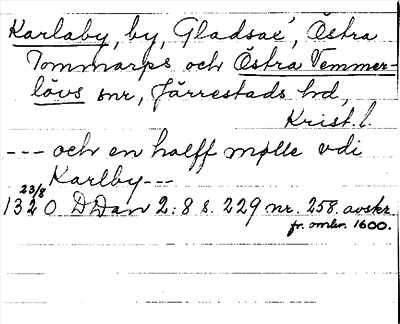 Karlaby, by, Gladsax, Östra
Tommarps och Östra Vemmer-
lövs snr, Järrestads hd,
Krist. l.
--- och en halff mølle vdi
Karlby ---
23/8
1320 DDan 2:8 s. 229 nr. 258. avskr.
fr. omkr. 1600.